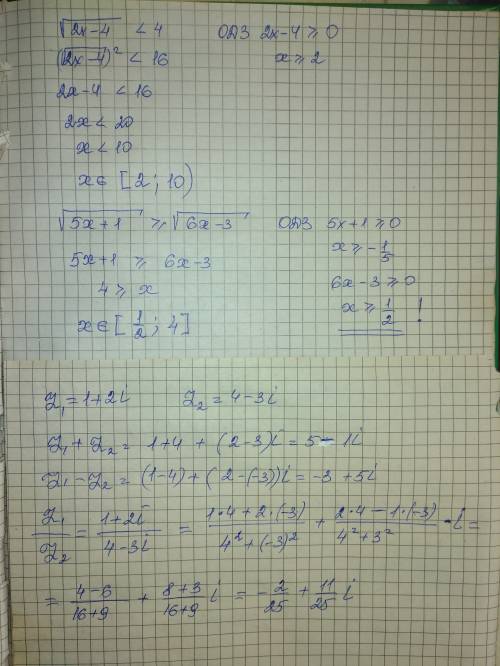 √(2x-4) < 4 ОДЗ 2x-4 ≥ 0
(√(2x-4))² < 16 x ≥ 2
2x-4 < 16
2x < 20
x < 10
x∈ [2; 10)
√(5x+1) ≥ √(6x-3) ОДЗ 5x+1 ≥ 0
x ≥ -1/5
5x+1 ≥ 6x-3
6x-3 ≥ 0
4 ≥ x
x ≥ 1/2 !
x∈[1/2; 4]
Z₁ = 1+2i Z₂ = 4-3i
Z₁ + Z₂ = 1+4 + (2-3)i = 5-1i
Z₁ - Z₂ = (1-4)+(2-(-3))i = -3+5i
Z₁/Z₂ = (1+2i)/(4-3i) = (1·4+2·(-3))/(4²+(-3)²) + (2·4-1·(-3))/(4²+3²)·i =
= (4-6)/(16+9) + (8+3)/(16+9) i = -2/25 + 11/25 i